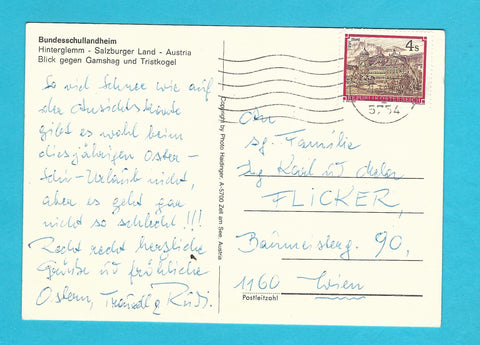 Bundesschullandheim
Hinterglemm - Salzburger Land - Austria
Blick gegen Gamshag und Tristkogel
So viel Schnee wie auf
der Ansichtskarte
gibt es wohl beim
diesjährigen Oster-
Schi-Urlaub nicht,
aber es geht gar
nicht so schlecht!!!
Recht recht herzliche
Grüße und fröhliche
Ostern, Traudl & Rudi.
Copyright by Photo Haidinger, A-5700 Zell am See, Austria
4s
REPUBLIK ÖSTERREICH
5754
An
sg. Familie
Ing Karl u.
FLICKER,
Baumeisterg. 90,
1160 Wien
Postleitzahl